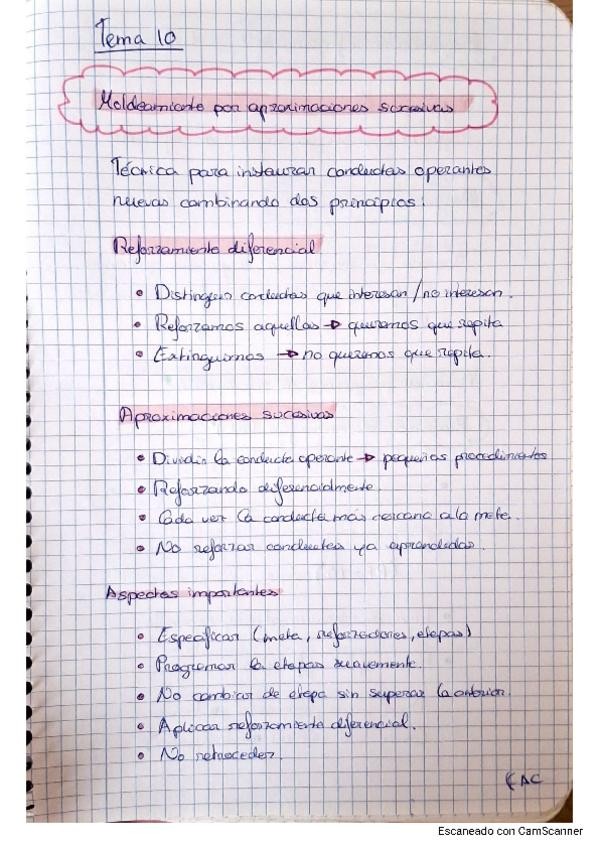 Tema 10
Moldeamiento por aproximaciones sucesivas
Técnica para instaurar conductas operantes
nuevas combinando dos principios:
Reforzamiento diferencial
• Distinguir conductas que interesan / no interesan.
• Reforzamos aquellas → queremos que repita
• Extinguimos → no queremos que repita.
Aproximaciones sucesivas
• Dividir la conducta operante → pequeños procedimientos
• Reforzando diferencialmente
• Cada vez la conducta más cercana a la meta.
• No reforzar conductas ya aprendidas.
Aspectos importantes
• Especificar (meta, reforzadores, etapas)
• Programar la etapas suavemente.
• No cambiar de etapa sin superar la anterior.
• Aplicar reforzamiento diferencial.
• No retroceder.
AC
Escaneado con CamScanner